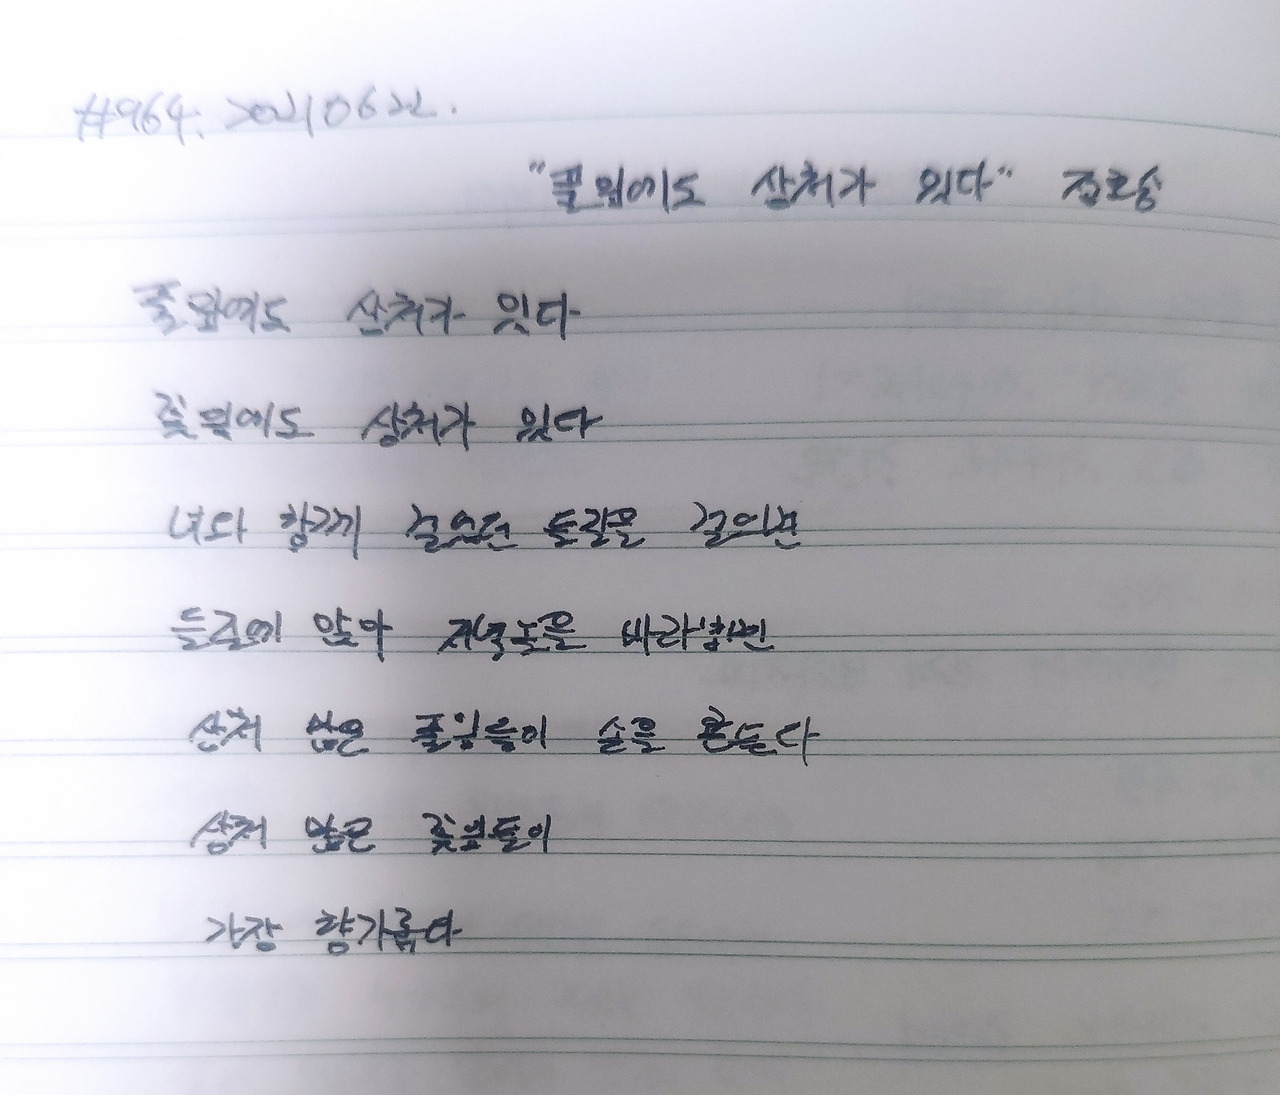 #964. 20210622.
"풀잎에도 상처가 있다" 정호승
풀잎에도 상처가 있다
꽃잎에도 상처가 있다
너와 함께 걸었던 들길을 걸으면
들길에 앉아 저녁노을을 바라보면
상처 많은 풀잎들이 손을 흔든다
상처 많은 꽃잎들이
가장 향기롭다